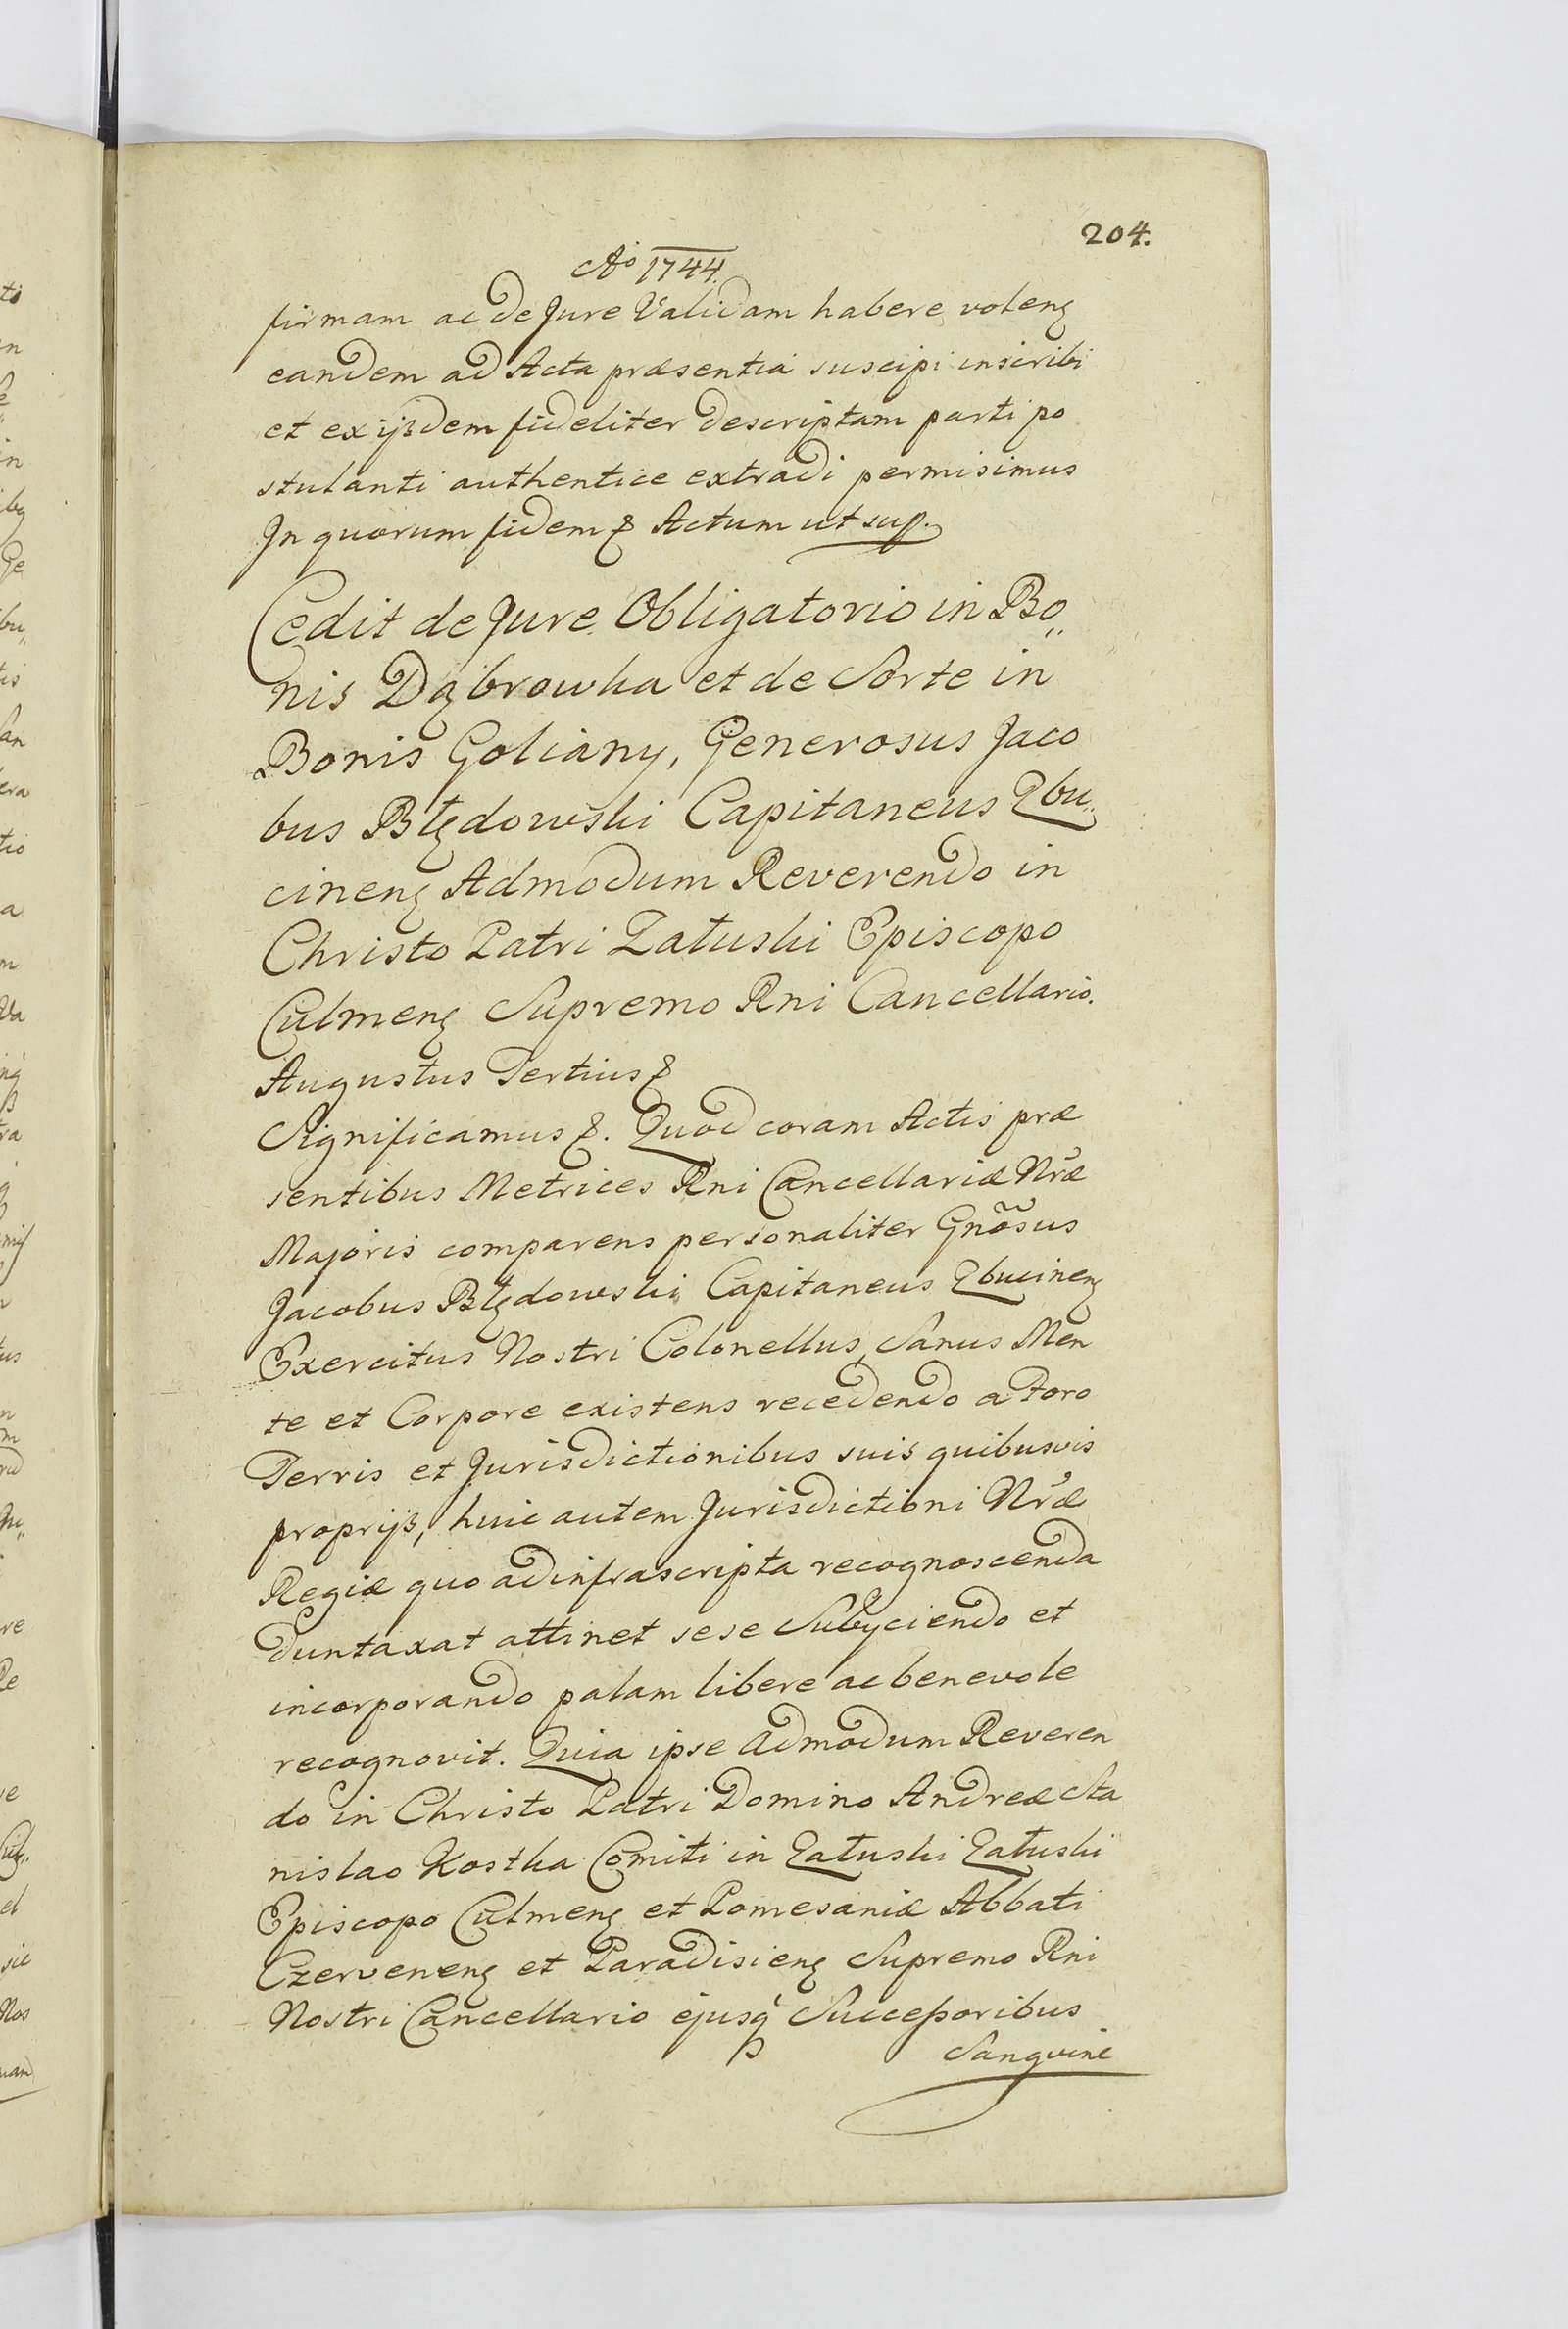 204.
Aº 1744.
firmam ac de Jure Validam habere volenƷ
eandem ad Acta præsentia suscipi inscribi
et ex ijsdem fideliter descriptam parti po
stulanti authentice extradi permisimus
Jn quorum fidem & Actum ut sup.
Cedit de Jure Obligatorio in Bo„
nis Dąbrowka et de Sorte in
Bonis Goliany, Generosus Jaco
bus Błędowski Capitaneus Zbu„
cinenƷ Admodum Reverendo in
Christo Patri Załuski Episcopo
CulmenƷ Supremo Rni Cancellario.
Augustus Tertius &
Significamus &. Quod coram Actis præ
sentibus Metrices Rni Cancellariæ Nræ
Majoris comparens personaliter Gnõsus
Jacobus Błędowski Capitaneus ZbucinenƷ
Exercitus Nostri Colonellus, Sanus Men
te et Corpore existens recedendo a Foro
Terris et Jurisdictionibus suis quibusvis
proprijs, huic autem Jurisdictioni Nræ
Regiæ quo ad infrascripta recognoscenda
duntaxat attinet sese Subyciendo et
incorporando palam libere ac benevole
recognovit. Quia ipse Admodum Reveren
do in Christo Patri Domino Andreæ Sta
nislao Kostka Comiti in Załuski Załuski
Episcopo CulmenƷ et Pomesaniæ Abbati
CzervenenƷ et ParadisienƷ Supremo Rni
Nostri Cancellario ejusq́ Succeßoribus
Sanguine